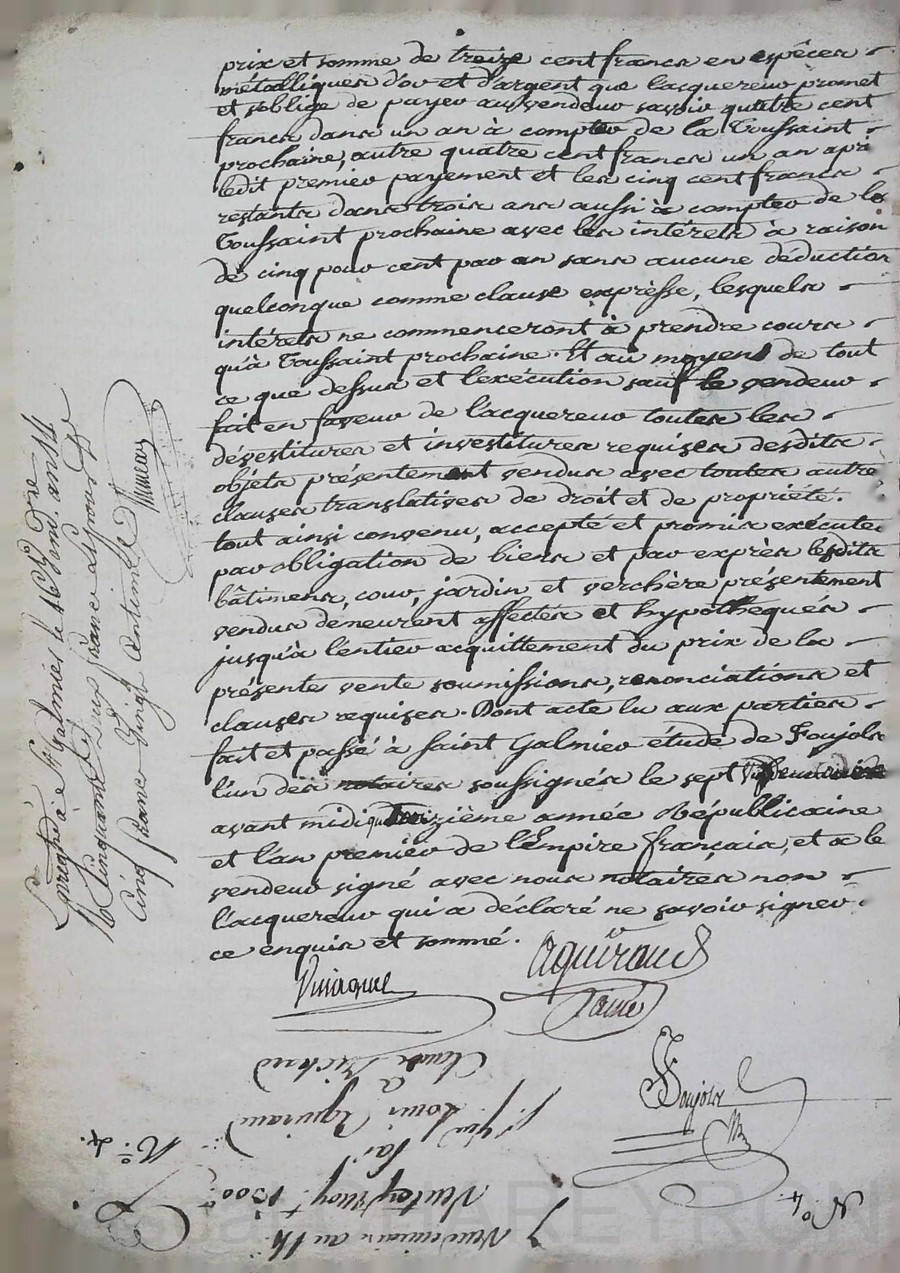 prix et somme de treize cent francs en espèces
métalliques d'or et d'argent que l'acquereur promet
et s'oblige de payer au vendeur savoir quatre cent
francs dans un an à compter de la Toussaint
prochaine, autre quatre cent francs un an aprè
ledit premier payement et les cinq cent francs
restants dans trois ans aussi à compter de la
Toussaint prochaine avec les intérets à raison
de cinq pour cent par an sans aucune déduction
quelconque comme clause expresse, lesquels
intérets ne commenceront à prendre cours
qu'à Toussaint prochaine. Et au moyens de tout
ce que dessus et l'exécution sauf le vendeur
fait en faveur de l'acquereur toutes les
dévestitures et investitures requises desdits
objets présentement vendus avec toutes autre
clauses translatives de droit et de propriété.
tout ainsi convenu, accepté et promis exécuter
par obligation de biens et par exprès lesdits
bâtiments, cour, jardin, et verchère présentement
vendus demeurent affectés et hypothéqués
jusqu'à l'entier acquittement du prix de la
présente vente soumissions, renonciations et
clauses requises. Dont acte lu aux parties
fait et passé à Saint Galmier étude de Foujols
l'un des notaires soussignés le sept vendemiaire
avant midi quatorzième année Républicaine
et l'an premier de l'Empire français, et a le
vendeur signé avec nous notaires non
l'acquereur qui a déclaré ne savoir signer
ce enquis et sommé.
Aguiraud
Foujols
Nre
Enregistré à St Galmier le 16 Vend. an 14
cinq francs vingt centimes
7 Vendemiaire an 14
1300
Louis Aguiraud
à
Claude
No. 4.
No 4.